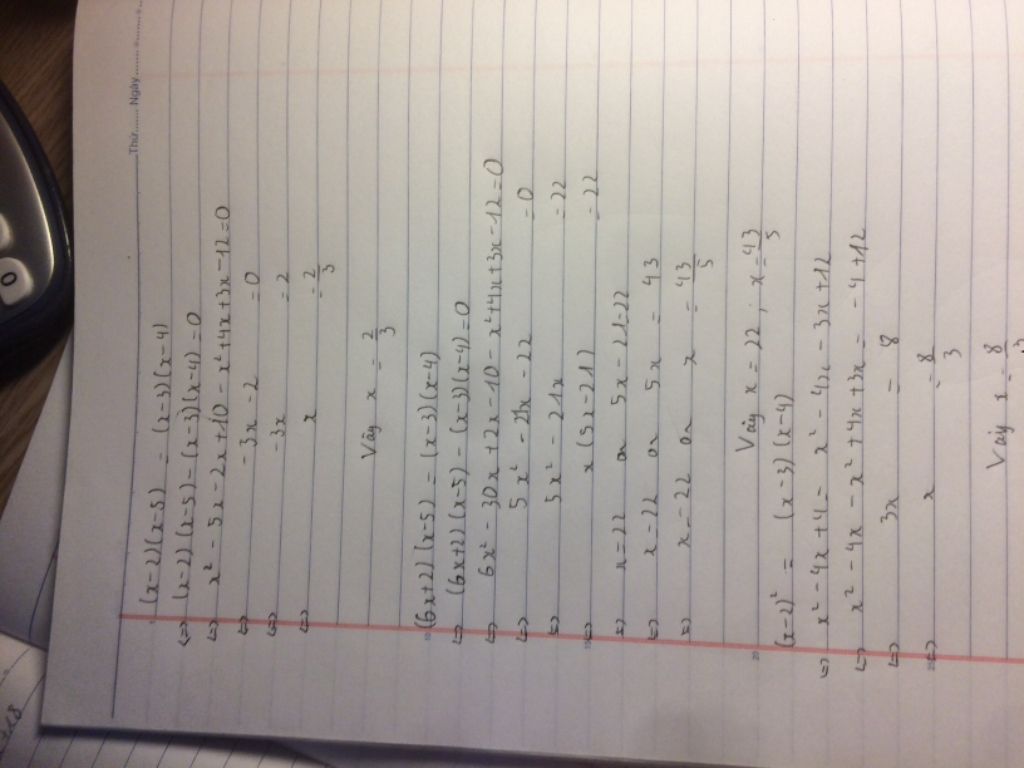 Thứ....... Ngày.........
(x-2)(x-5) = (x-3)(x-4)
<=> (x-2)(x-5) - (x-3)(x-4) = 0
<=> x² - 5x - 2x + 10 - x² + 4x + 3x - 12 = 0
<=> -3x - 2 = 0
<=> -3x = 2
<=> x = -2/3
Vậy x = 2/3
(6x+2)(x-5) = (x-3)(x-4)
<=> (6x+2)(x-5) - (x-3)(x-4) = 0
<=> 6x² - 30x + 2x - 10 - x² + 4x + 3x - 12 = 0
<=> 5x² - 21x - 22 = 0
<=> 5x² - 21x = 22
<=> x(5x-21) = 22
<=> x = 22 or 5x - 21 = 22
<=> x = 22 or 5x = 43
<=> x = 22 or x = 43/5
Vậy x = 22 ; x = 43/5
(x-2)² = (x-3)(x-4)
<=> x² - 4x + 4 = x² - 4x - 3x + 12
<=> x² - 4x - x² + 4x + 3x = -4 + 12
<=> 3x = 8
<=> x = 8/3
Vậy x = 8/3
0